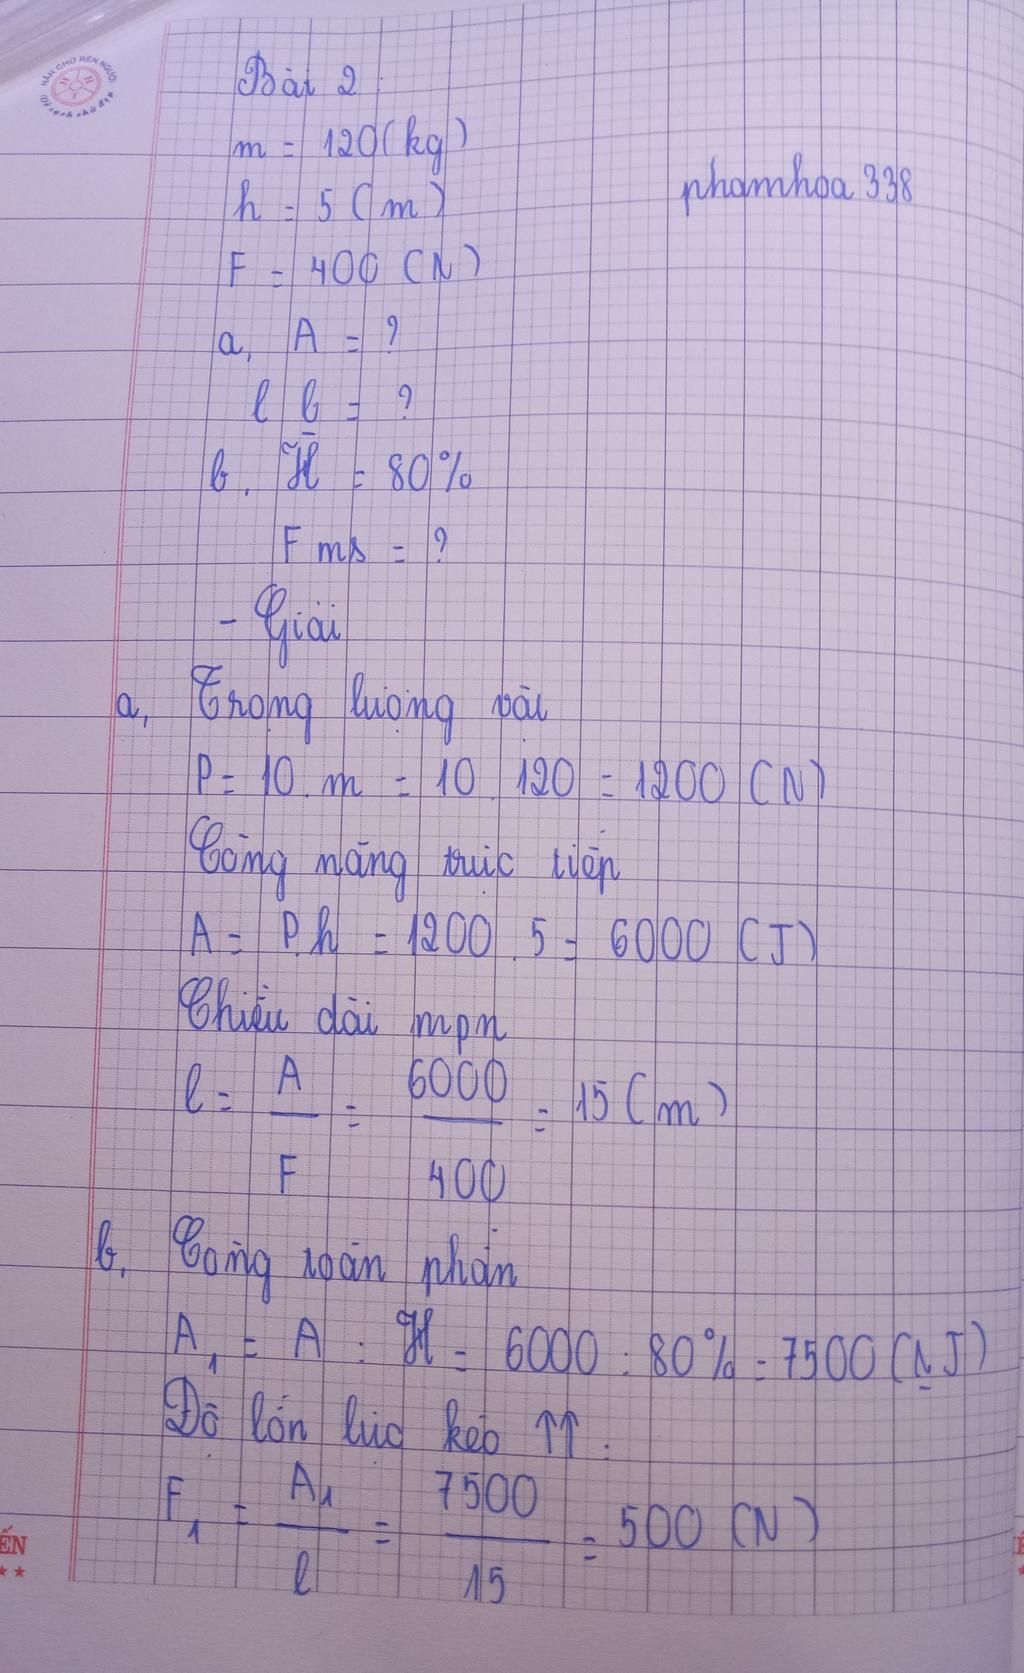 NÂN CHỮ RÈN NGƯỜI
Vở sạch chữ đẹp
Bài 2
m = 120 (kg)
phamhoa 338
h = 5 (m)
F = 400 (N)
a, A = ?
l = ?
b, H = 80%
Fms = ?
- Giải
a, Trọng lượng vải
P = 10.m = 10.120 = 1200 (N)
Công nâng trực tiếp
A = P.h = 1200.5 = 6000 (J)
Chiều dài mpn
l = A/F = 6000/400 = 15 (m)
b, Công toàn phần
A1 = A : H = 6000 : 80% = 7500 (J)
Độ lớn lực kéo ↑↑.
F1 = A1/l = 7500/15 = 500 (N)
ẾN